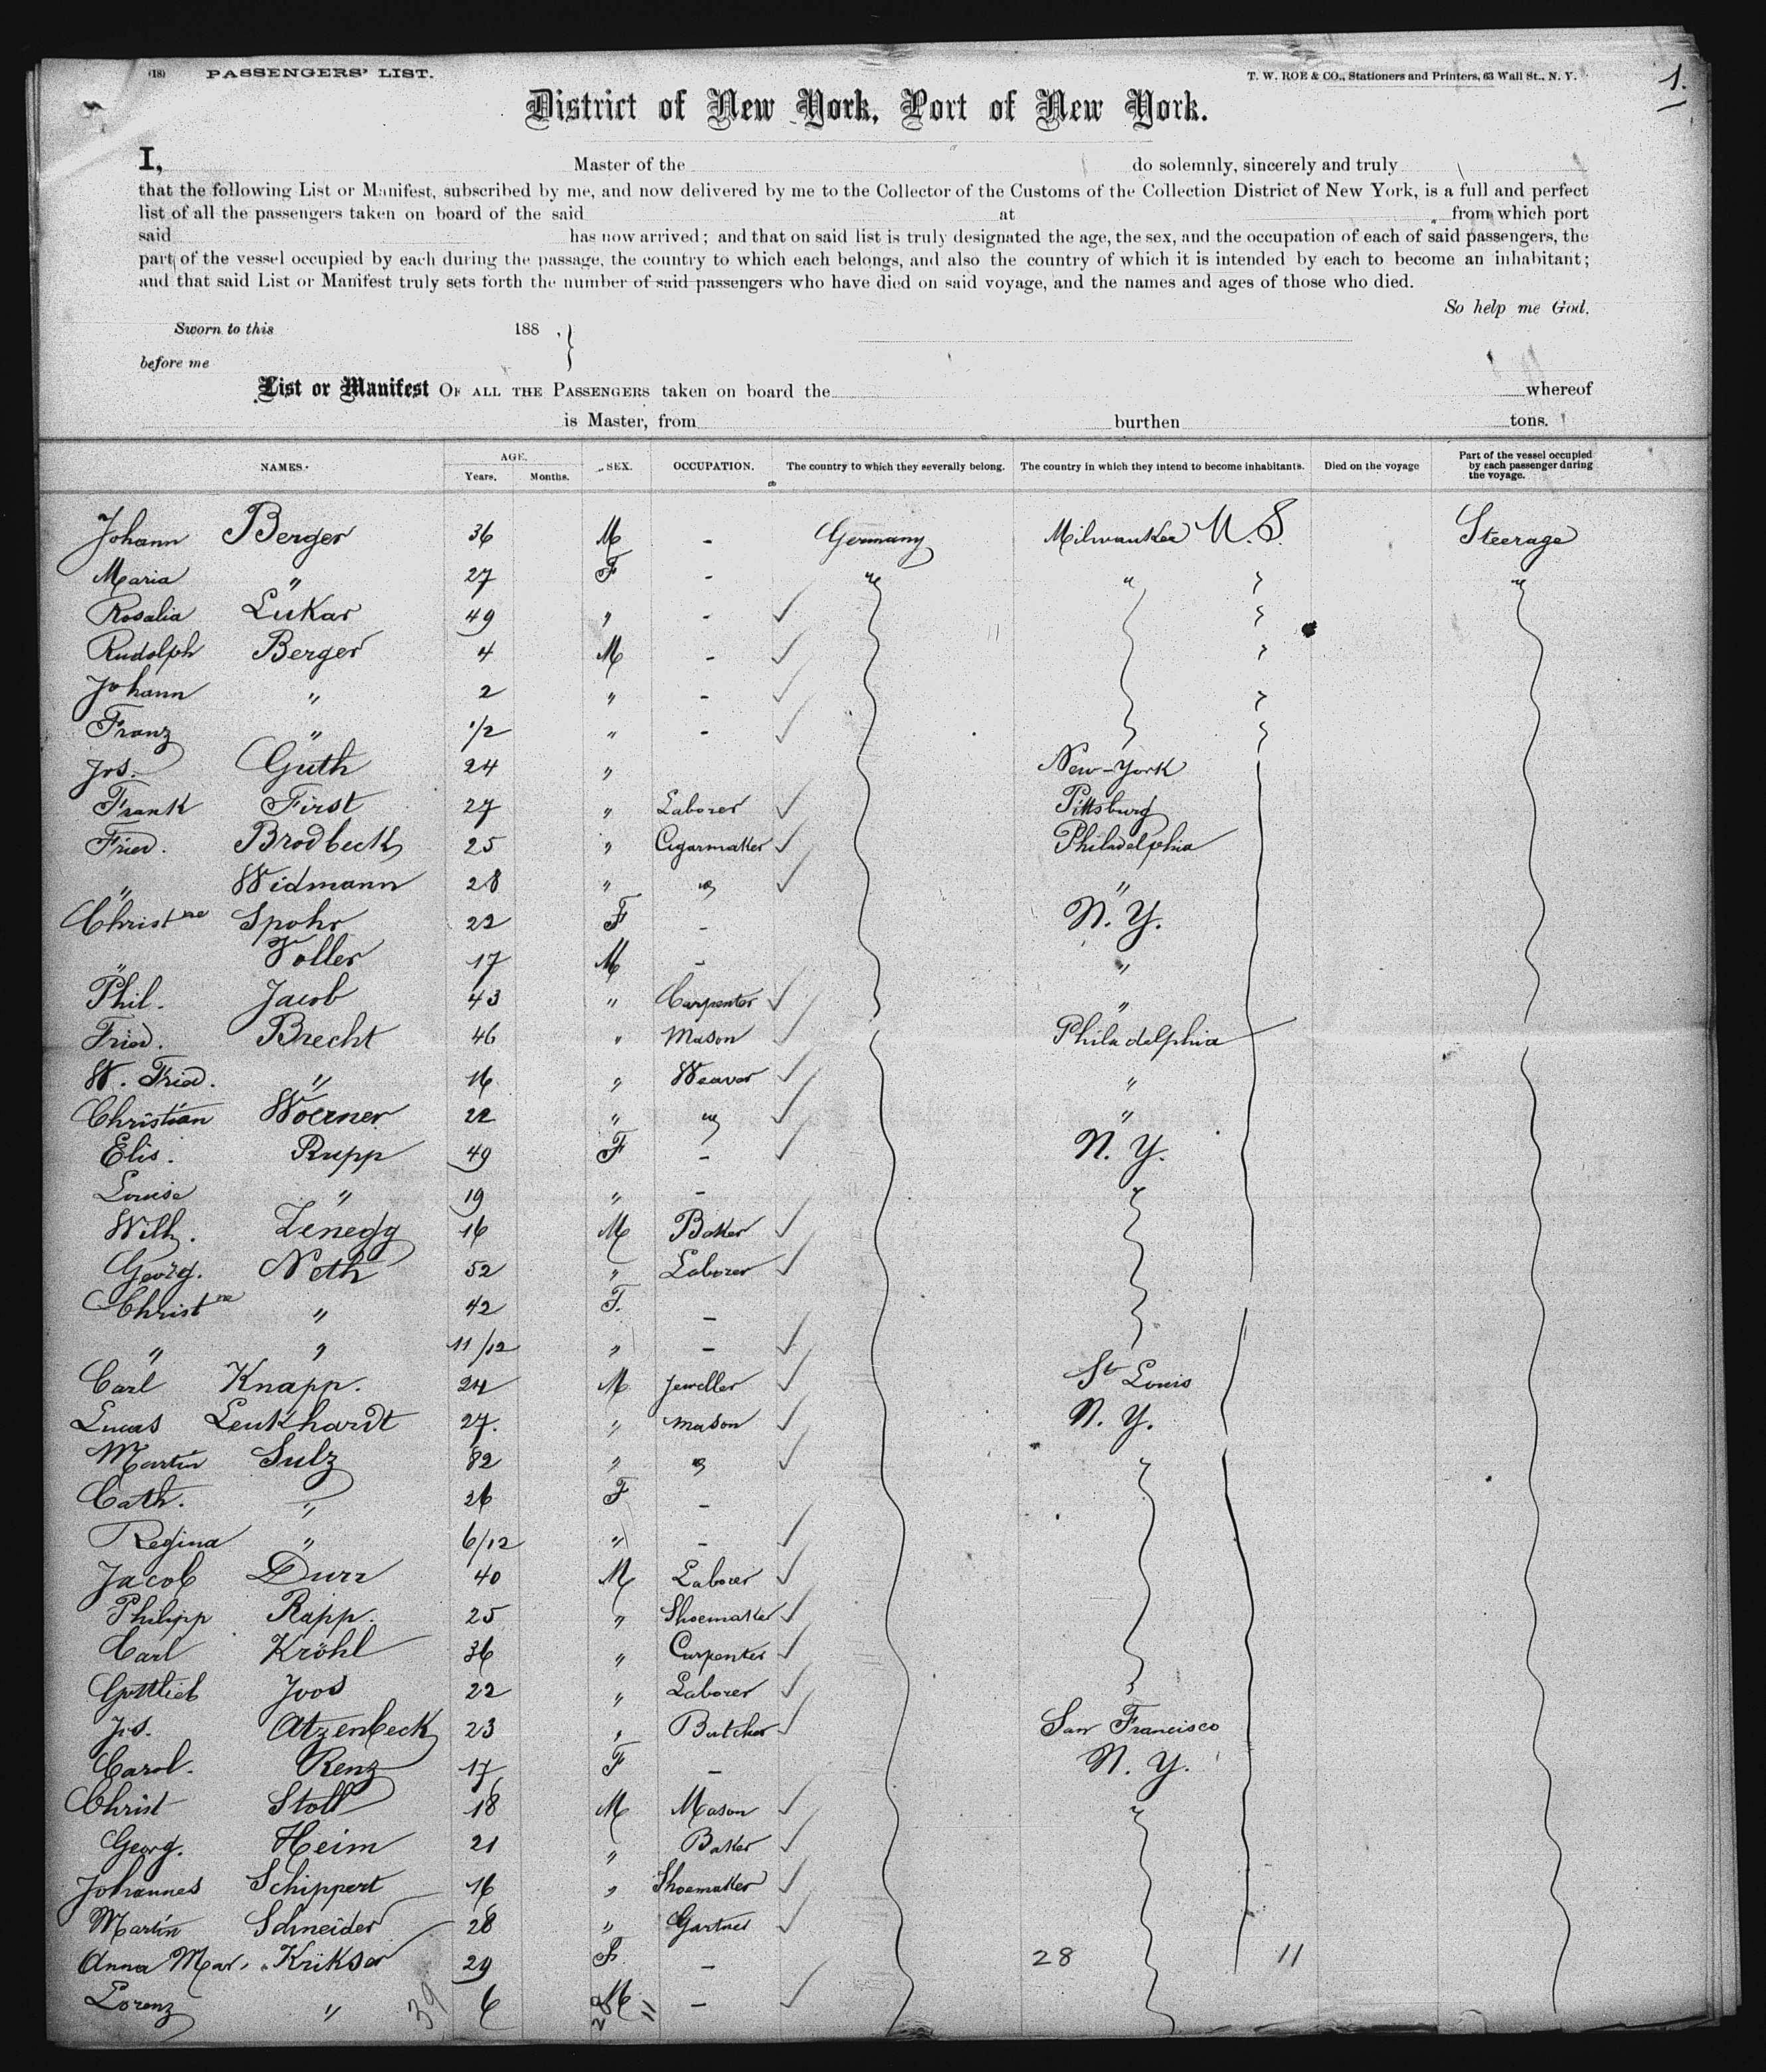 (18) PASSENGERS' LIST. T. W. ROE & CO., Stationers and Printers, 63 Wall St., N. Y. 1.
District of New York, Port of New York.
I, Master of the do solemnly, sincerely and truly
that the following List or Manifest, subscribed by me, and now delivered by me to the Collector of the Customs of the Collection District of New York, is a full and perfect
list of all the passengers taken on board of the said at from which port
said has now arrived; and that on said list is truly designated the age, the sex, and the occupation of each of said passengers, the
part of the vessel occupied by each during the passage, the country to which each belongs, and also the country of which it is intended by each to become an inhabitant;
and that said List or Manifest truly sets forth the number of said passengers who have died on said voyage, and the names and ages of those who died.
So help me God.
Sworn to this 188 .
before me
List or Manifest OF ALL THE PASSENGERS taken on board the whereof
is Master, from burthen tons.
NAMES. AGE. Years. Months. SEX. OCCUPATION. The country to which they severally belong. The country in which they intend to become inhabitants. Died on the voyage Part of the vessel occupied by each passenger during the voyage.
Johann Berger 36 M - Germany Milwaukee U. S. Steerage
Maria " 27 F - " " "
Rosalia Lukar 49 " -
Rudolph Berger 4 M -
Johann " 2 " -
Franz " 1/2 " -
Jos. Guth 24 " New-York
Frank First 27 " Laborer Pittsburg
Fried. Brodbeck 25 " Cigarmaker Philadelphia
" Widmann 28 " " "
Christne Spohr 22 F - N. Y.
" Voller 17 M - "
Phil. Jacob 43 " Carpenter "
Fried. Brecht 46 " Mason Philadelphia
W. Fried. " 16 " Weaver "
Christian Woerner 22 " " "
Elis. Rupp 49 F - N. Y.
Louise " 19 " -
Wilh. Zenegg 16 M Baker
Georg. Neth 52 " Laborer
Christne " 42 F. -
" " 11/12 " -
Carl Knapp. 24 M Jeweller St Louis
Lucas Leukhardt 27. " Mason N. Y.
Martin Sulz 82 " "
Cath. " 26 F -
Regina " 6/12 " -
Jacob Durr 40 M Laborer
Philipp Rapp. 25 " Shoemaker
Carl Kröhl 36 " Carpenter
Gottlieb Joos 22 " Laborer
Jos. Atzenbeck 23 " Butcher San Francisco
Carol. Renz 17 F - N. Y.
Christ Stoll 18 M Mason
Georg. Heim 21 " Baker
Johannes Schippert 16 " Shoemaker
Martin Schneider 28 " Gartner
Anna Mar. Kriksor 29 F. - 28 11
Lorenz " 6 M -
39 28 11